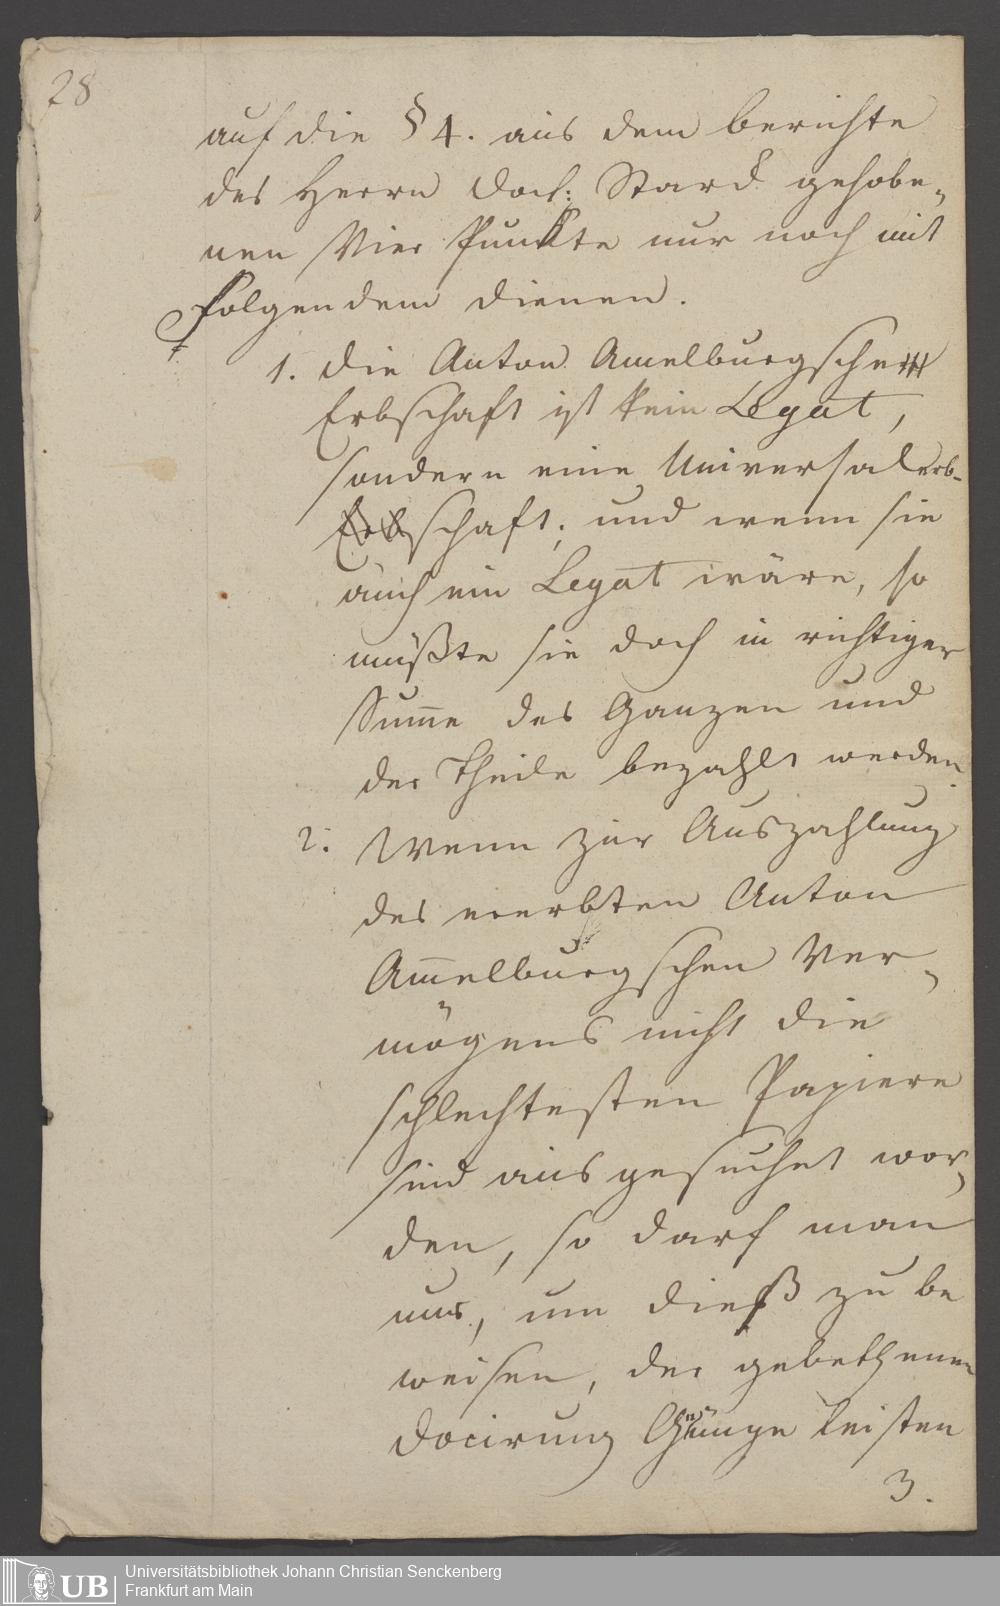 28
auf die § 4. aus dem berichte
des Herrn Doct: Starck gehobe-
nen Vier Punkte nur noch mit
folgendem dienen.
1. die Anton Amelburgsche
Erbschaft ist kein Legat,
sondern eine Universalerb-
schaft; und wenn sie
auch ein Legat wäre, so
müßte sie doch in richtiger
Sum̅e des Ganzen und
der Theile bezahlt werden.
2. Wenn zur Auszahlung
des ererbten Anton
Am̅elburgschen Ver-
mögens nicht die
schlechtesten Papiere
sind ausgesuchet wor-
den, so darf man
nur, um dieß zu be
weisen, der gebethenen
Docirung Genüge leisten
3.
UB
Universitätsbibliothek Johann Christian Senckenberg
Frankfurt am Main